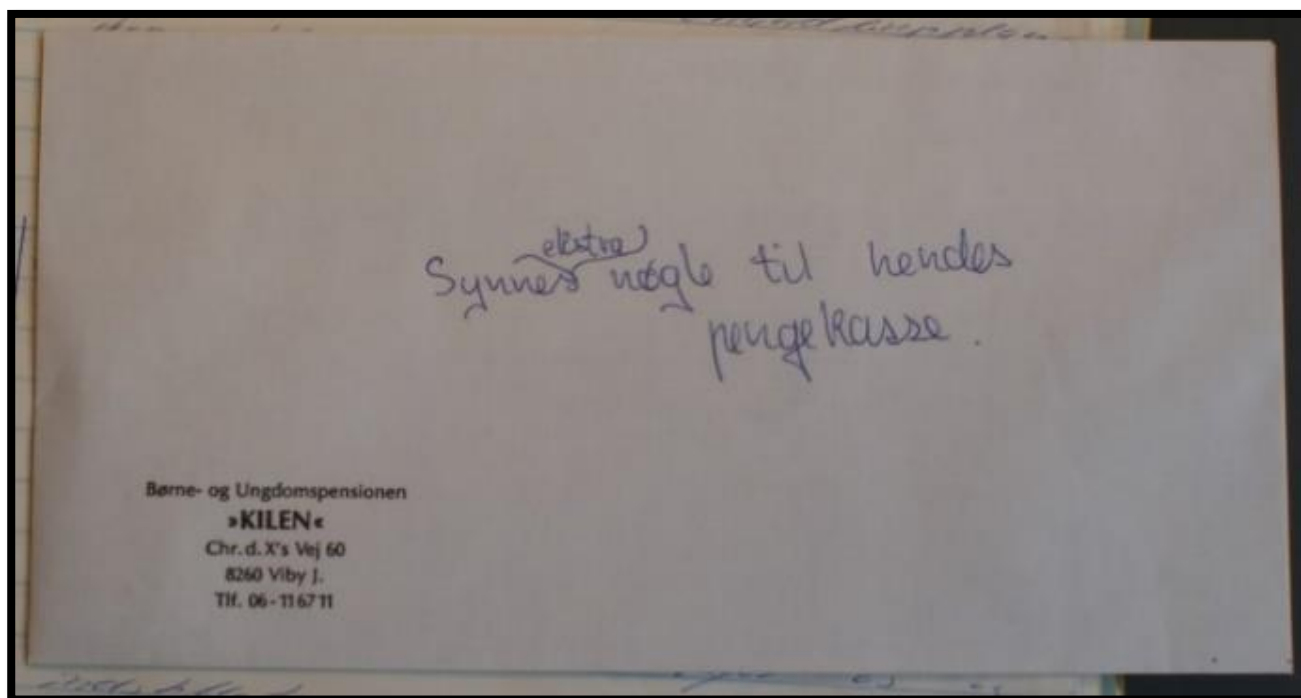 Synnes ekstra nøgle til hendes
pengekasse.
Børne- og Ungdomspensionen
»KILEN«
Chr. d. X's Vej 60
8260 Viby J.
Tlf. 06-11 67 11